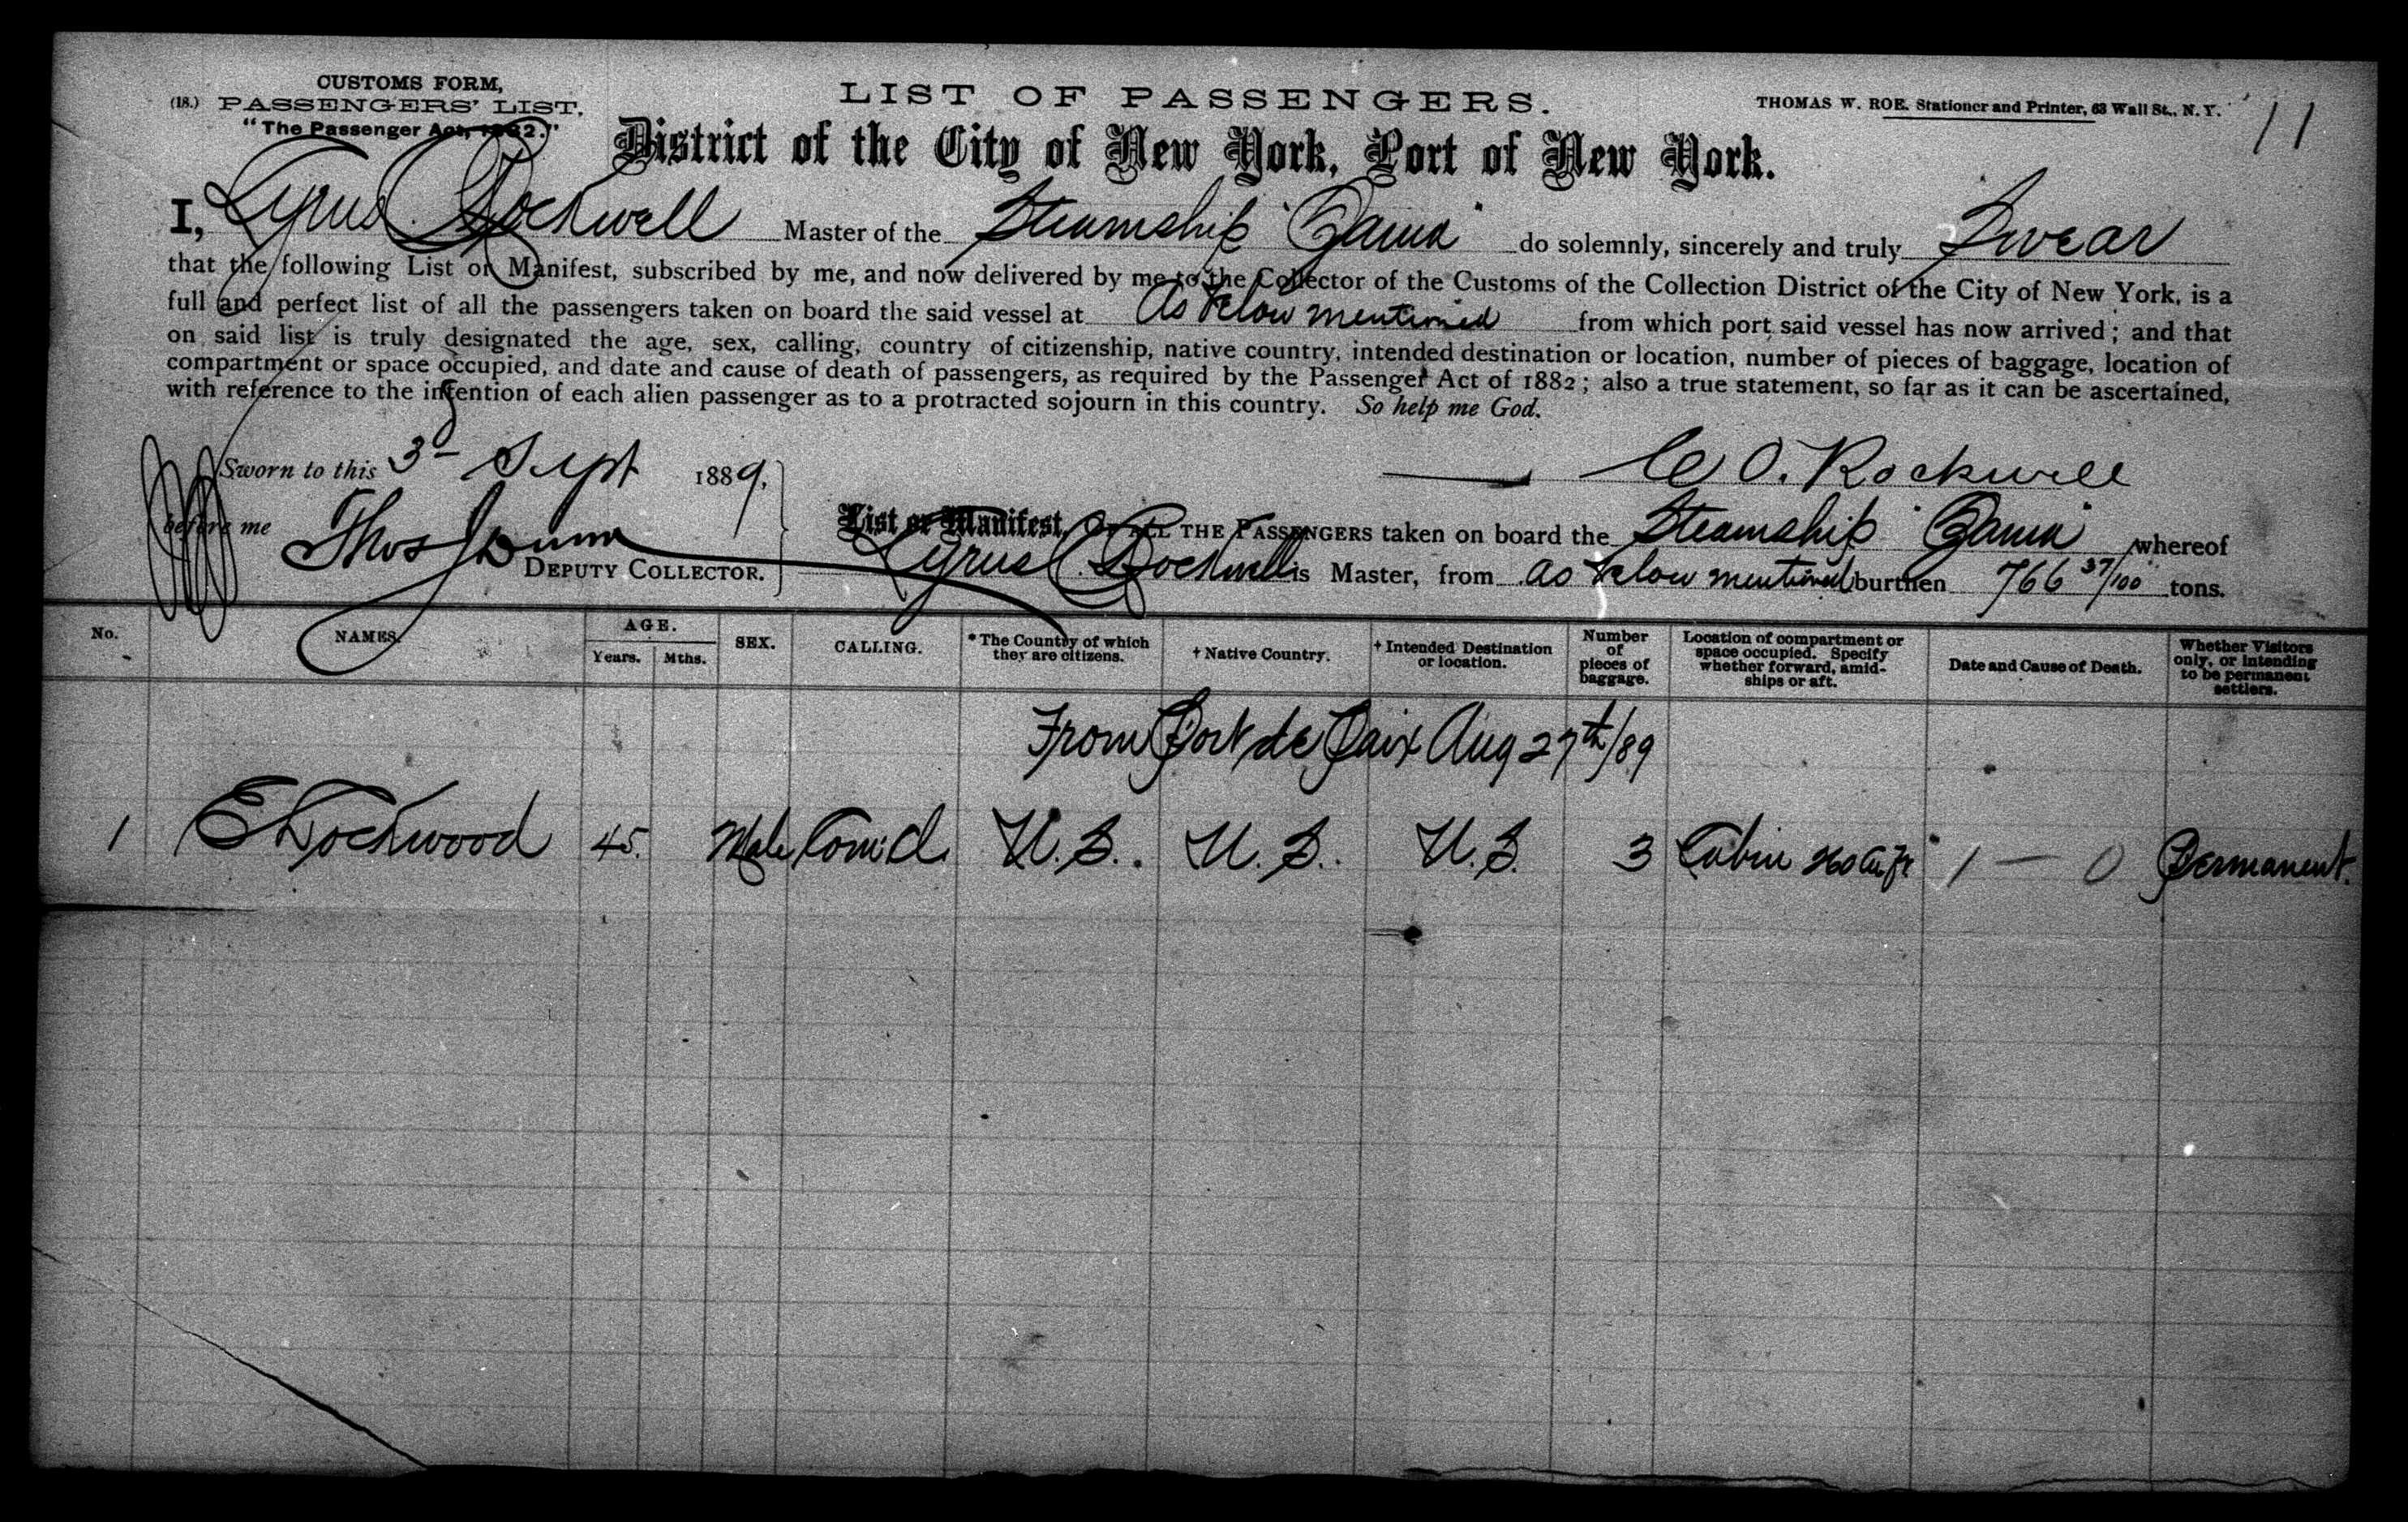 CUSTOMS FORM,
(18.) PASSENGERS' LIST.
"The Passenger Act, 1882."
LIST OF PASSENGERS.
THOMAS W. ROE. Stationer and Printer, 63 Wall St., N. Y.
11
District of the City of New York, Port of New York.
I, Cyrus O. Rockwell Master of the Steamship "Ozama" do solemnly, sincerely and truly Swear
that the following List or Manifest, subscribed by me, and now delivered by me to the Collector of the Customs of the Collection District of the City of New York, is a
full and perfect list of all the passengers taken on board the said vessel at As below mentioned from which port said vessel has now arrived; and that
on said list is truly designated the age, sex, calling, country of citizenship, native country, intended destination or location, number of pieces of baggage, location of
compartment or space occupied, and date and cause of death of passengers, as required by the Passenger Act of 1882; also a true statement, so far as it can be ascertained,
with reference to the intention of each alien passenger as to a protracted sojourn in this country. So help me God.
Sworn to this 3d Sept 1889,
C O. Rockwell
before me Thos Dunn
DEPUTY COLLECTOR.
List or Manifest, OF ALL THE PASSENGERS taken on board the Steamship "Ozama" whereof
Cyrus O. Rockwell is Master, from as below mentioned burthen 766 37/100 tons.
No. NAMES. AGE. Years. Mths. SEX. CALLING. * The Country of which they are citizens. † Native Country. † Intended Destination or location. Number of pieces of baggage. Location of compartment or space occupied. Specify whether forward, amidships or aft. Date and Cause of Death. Whether Visitors only, or intending to be permanent settlers.
From Port de Paix Aug 27th/89
1 E Lockwood 45. Male Com'l. U.S. U.S. U.S. 3 Cabin 1 — 0 Permanent.